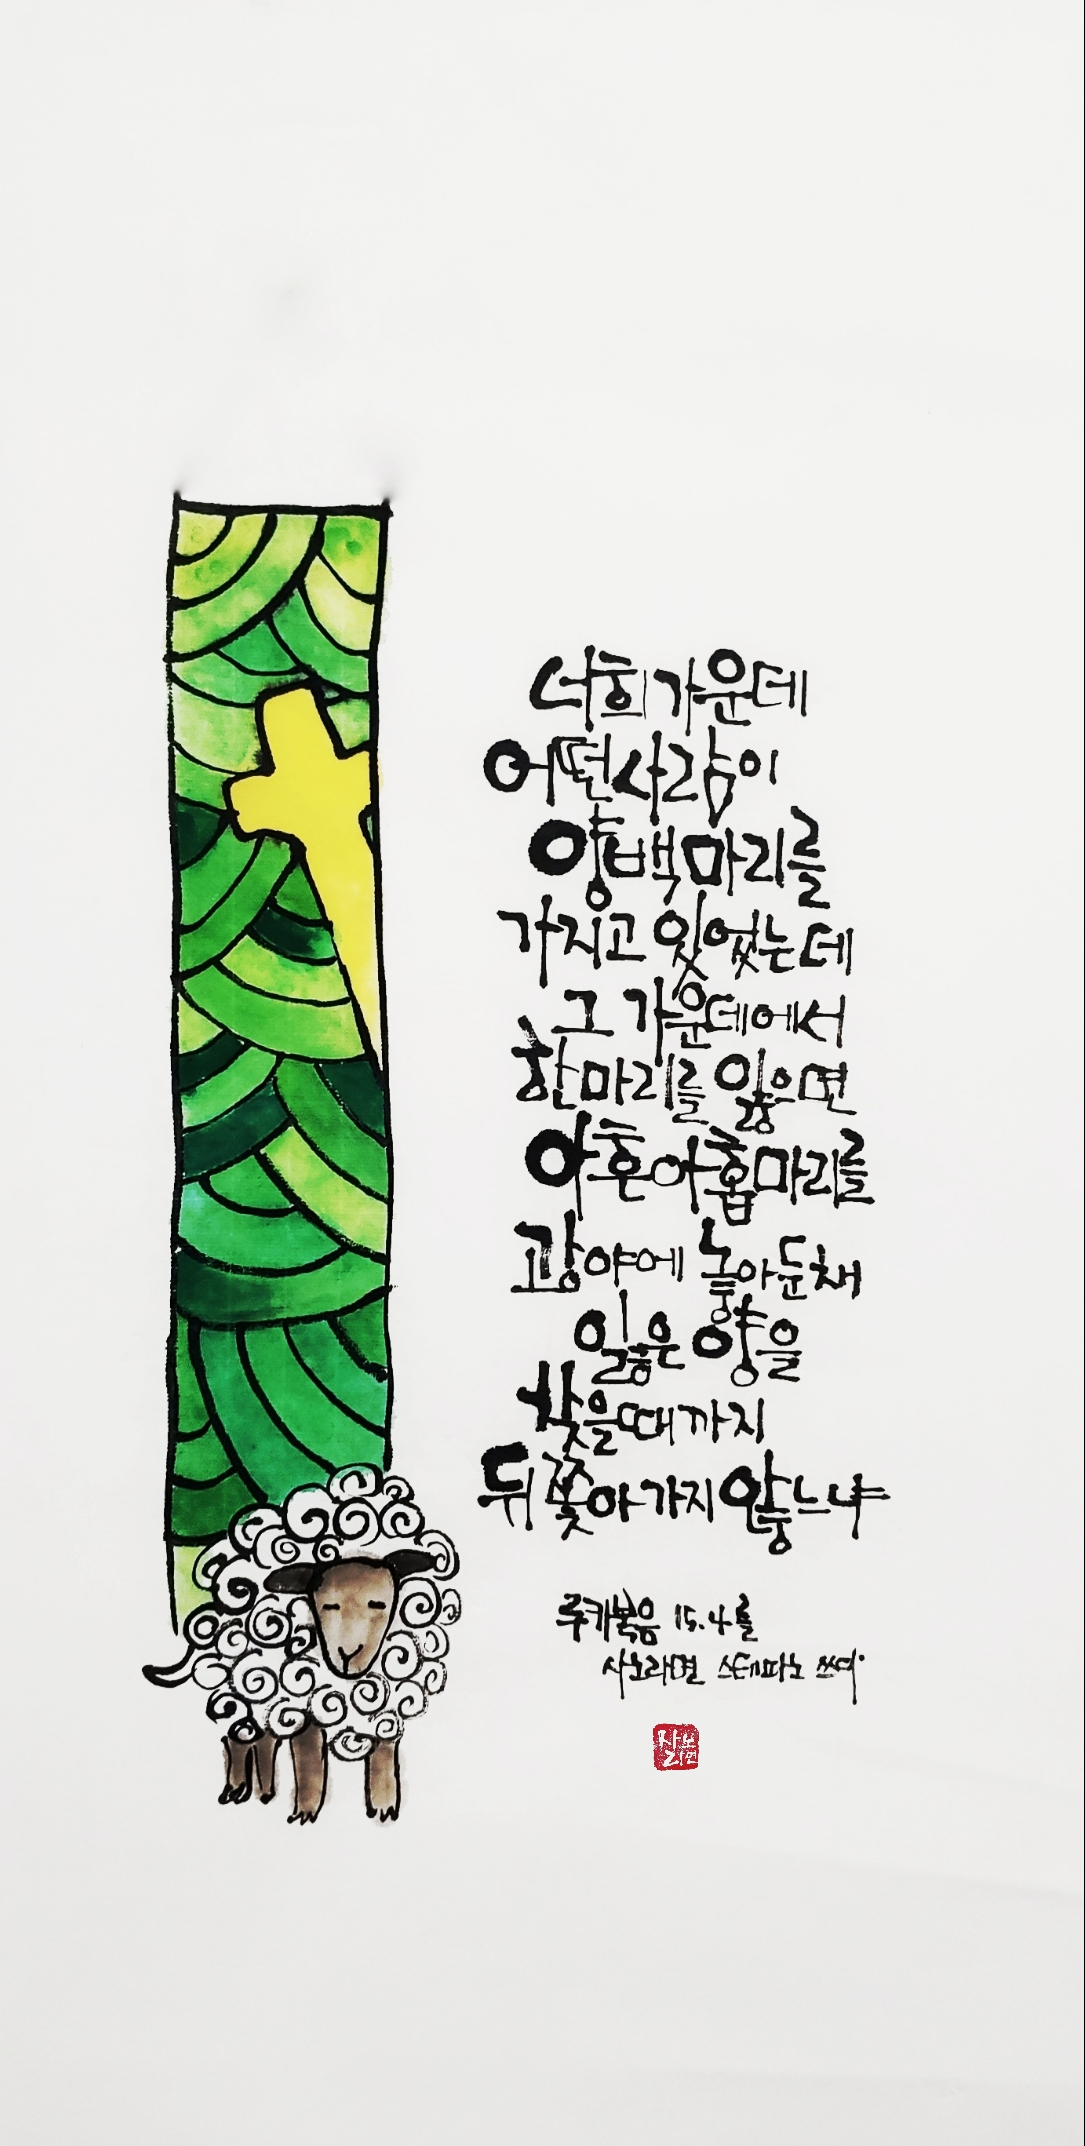 너희 가운데
어떤 사람이
양 백 마리를
가지고 있었는데
그 가운데에서
한 마리를 잃으면
아흔아홉 마리를
광야에 놓아둔 채
잃은 양을
찾을 때까지
뒤쫓아 가지 않느냐
루카복음 15.4.를
사노라면 스테파노 쓰다.
사노라면